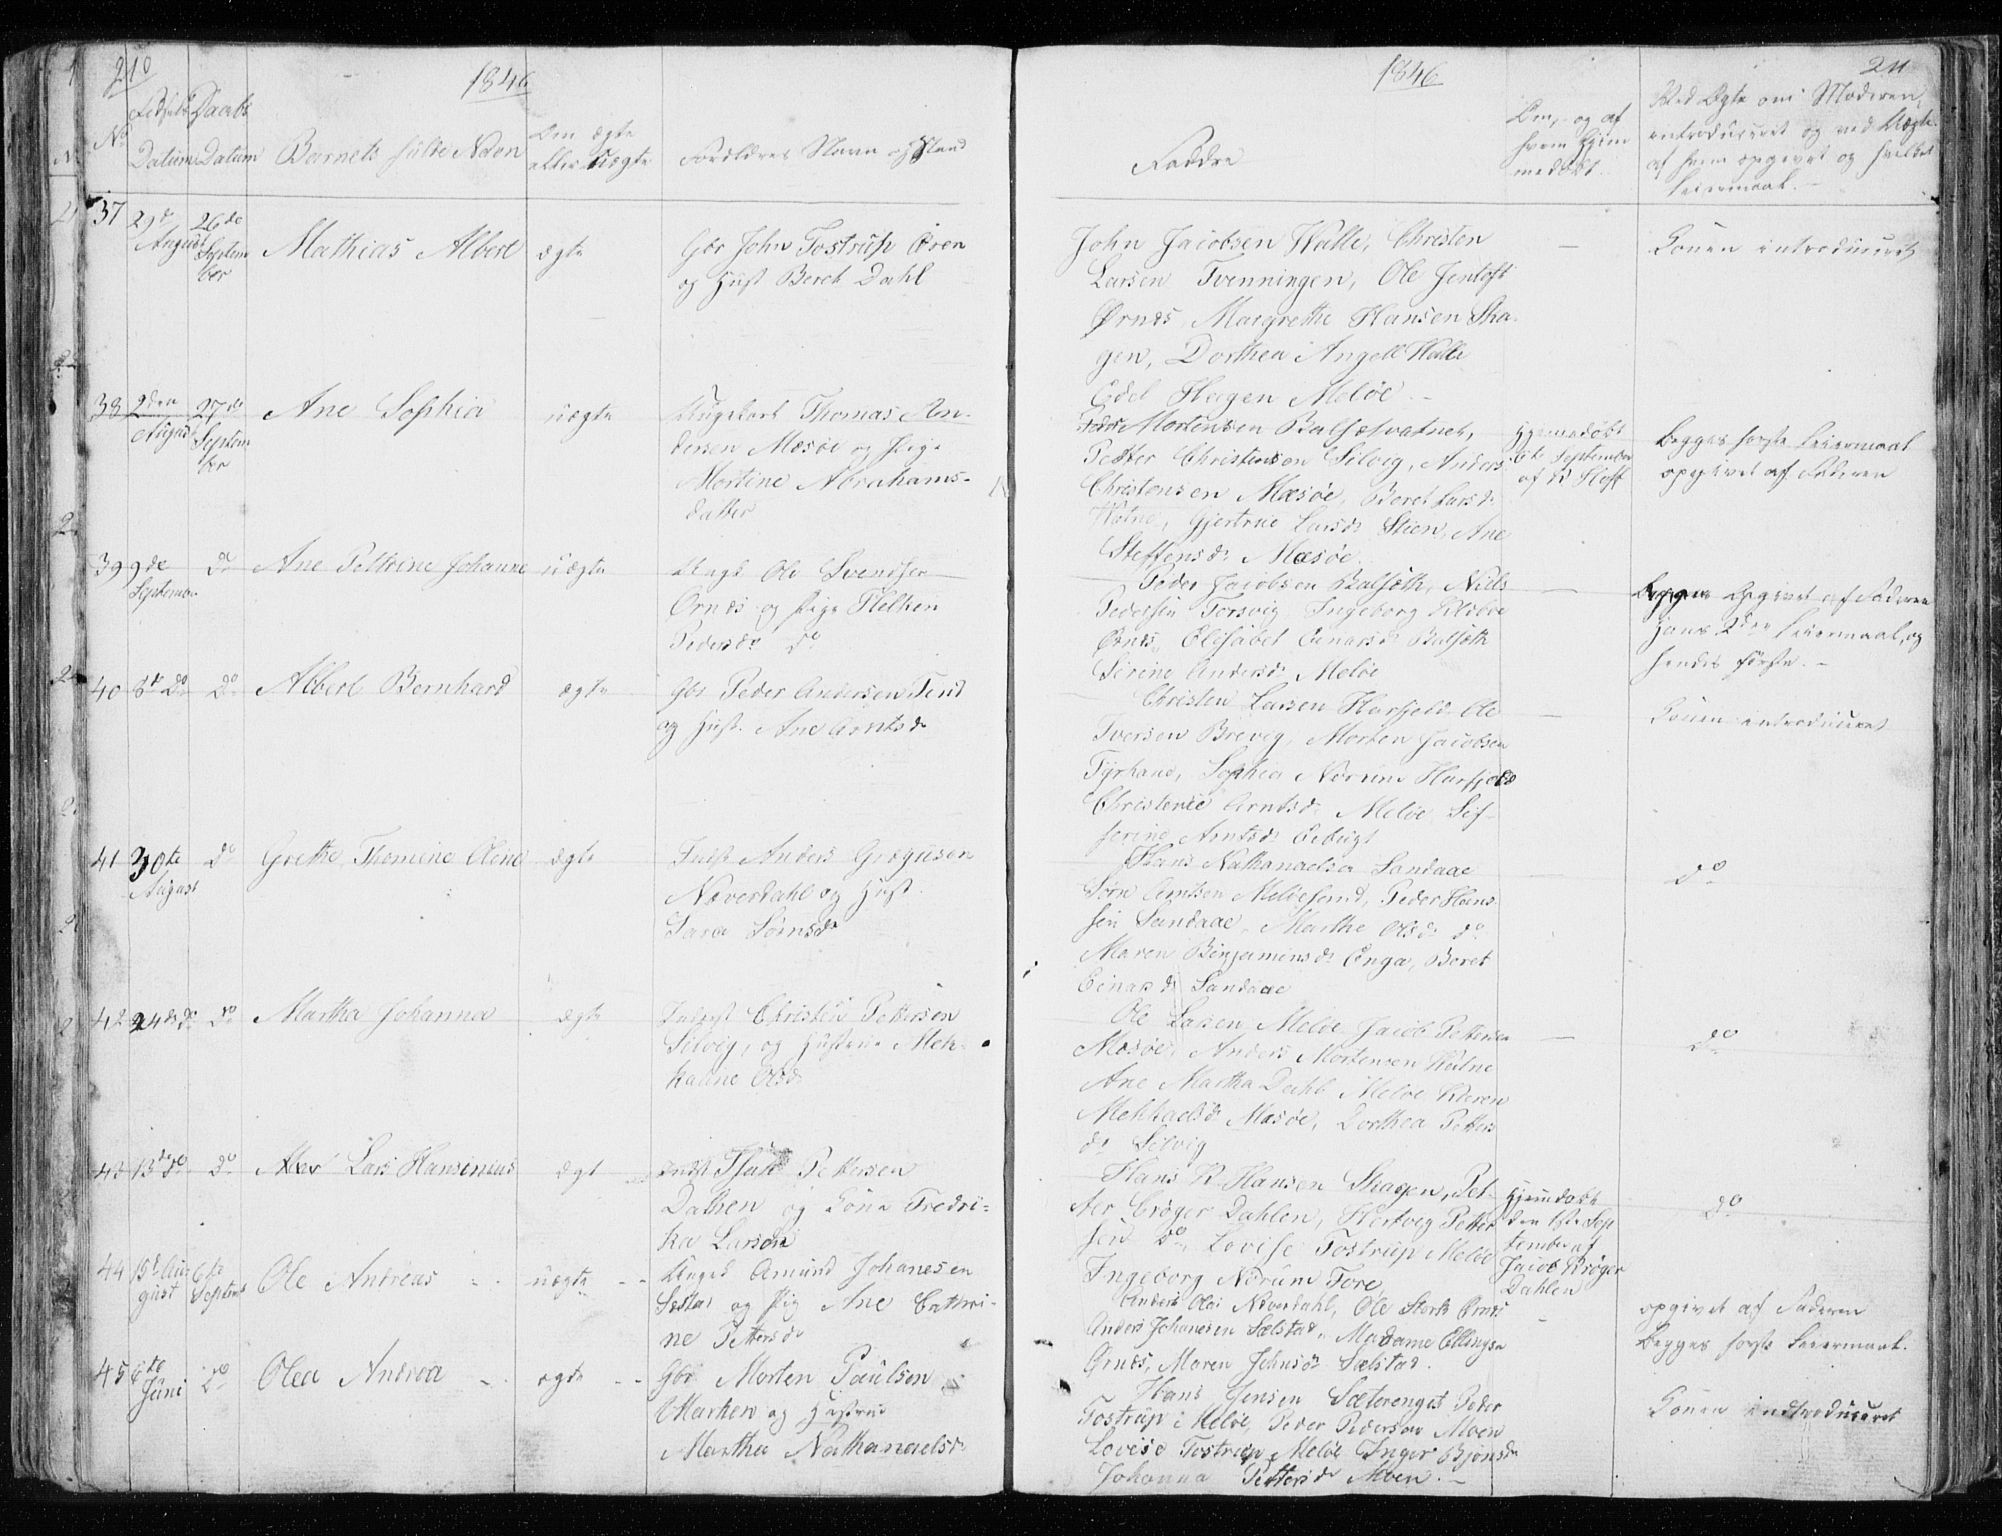 210
1846
No
Fødsels Daabs
Datum Datum
Barnets fulde Navn
Om ægte
eller uægte
Forældres Navn og Stand
37
29de
August
26de
Septem
ber
Mathias Albert
ægte
Gbr John Tostrup Ören
og Hust Beret Dahl
38
2den
August
27de
Septem
ber
Ane Sophia
uægte
Ungekarl Thomas An-
dersen Mesøe og Pige
Mortine Abrahams-
datter
39
9de
September
Do
Ane Pettrine Johanne
uægte
Ungk Ole Svendsen
Ørnes og Pige Elleken
Pedersdr Do
40
8de Do
Do
Albert Bernhard
ægte
Gbr Peder Andersen
og Hust. Ane Arntsdr
41
30te
August
Do
Grethe Thomine Olena
ægte
Indst Anders Gregusen
Næverdahl og Hust
Sara Sörnsdr
42
24de do
Do
Martha Johanna
ægte
Inderst Christen Pettersen
Selvig, og Hustrue Meh-
kaline Olsdr
43
13de do
Do
Lars Hansinius
ægt
Indst Isak Pettersen
Dalhen og Kone Fredri-
ka Larsdr
44
15de Au
gust
6te
Septemb
Ole Andreas
uægte
Ungkd Amund Johanesen
Selstad og Pig Ane Cathri-
ne Pettersdr
45
6te
Juni
Do
Olea Andrea
ægte
Gbr Morten Paulsen
Marken og Hustrue
Martha Nathanaelsdr
1846
211
Faddre
Om, og af
hvem hjem
medøbt.
Ved Ægte om Moderen,
introduceret og ved Uægte
af hvem opgivet og hvilket
Leiermaal.
John Jacobsen Walle, Christen
Larsen Tvenningen, Ole Jentoft
Ørnes, Margrethe Hansen Ska-
gen, Dorthea Angell Walle
Edel Hagen Meløe
Konen introduceret
Peder Mortensen Balsætvatnet,
Petter Christensen Selvig, Anders
Christensen Mesøe, Beret Larsdr
Gjertrue Larsdr Stien, Ane
Steffensdr Mesøe
Hjemmedøbt
6te September
af
Begges første Leiermaal
opgivet af Faderen
Peder Jacobsen Balsæth, Niels
Pedersen Forsvig, Ingeborg
Ørnes, Elisabet Einarsdr Balsæth
Serine Andersdr Meløe
Begge Opgivet af Faderen
hans 2den Leiermaal, og
hendes første.
Christen Larsen Harfjeld, Ole
Iversen Brevig, Morten Jacobsen
Tyrhaug, Sophia Norum Harfjeld
Christense Arntsdr Meløe, Sef-
ferine Arntsdr Eebugt
Konen introduceret
Hans Nathanaelsen Sandaae
Sörn Arntsen Meløesund, Peder Hans-
sen Sandaae, Marthe Olsdr do
Maren Benjaminsdr Enga, Beret
Einarsdr Sandaae
Do
Ole Larsen Meløe, Jacob Pettersen
Mesøe, Anders Mortensen
Ane Martha Dahl Meløe, Karen
Mehkaelsdr Mesøe, Dorthea Petters
dr Selvig
Do
Hans R Hansen Skagen, Pet-
ter Crøger Dahlen, Hartvig Petter
sen Do, Lovise Tostrup Meløe
Ingeborg Norum Fore
Hjemdøbt
den 16te Sep
tember af
Jacob Krøger
Dahlen
Do
Anders Olsen Neverdahl, Ole Stork Ørnes
Anders Johanesen Selstad, Madame Ellingsen
Ørnes, Maren Johnsdr Selstad.
opgivet af Faderen
Begges første Leiermaal.
Hans Jensen Sæterenget, Peder
Tostrup i Meløe, Peder Pedersen Moen
Lovise Tostrup Meløe Inger Bjönsdr
Johanna Pettersdr Moen.
Konen indtroduceret